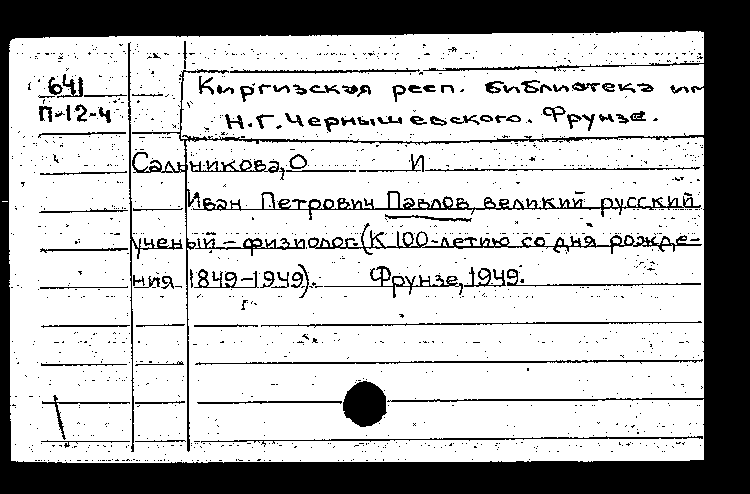 641
П-12-4
Киргизская респ. библиотека им
Н.Г.Чернышевского. Фрунзе.
Сальникова,О И
Иван Петрович Павлов, великий русский
ученый - физиолог.(К 100-летию со дня рожде-
ния 1849-1949). Фрунзе, 1949.